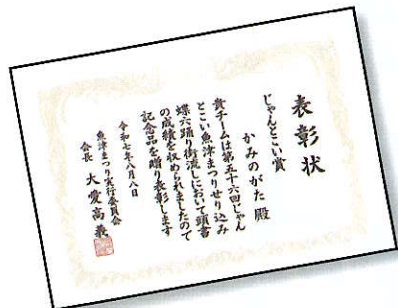 表彰状
じゃんとこい賞
かみのがた 殿
貴チームは第五十六回じゃん
とこい魚津まつりせり込み
蝶六踊り街流しにおいて頭書
の成績を収められましたので
記念品を贈り表彰します
令和七年八月八日
魚津まつり実行委員会
会長 大愛高義